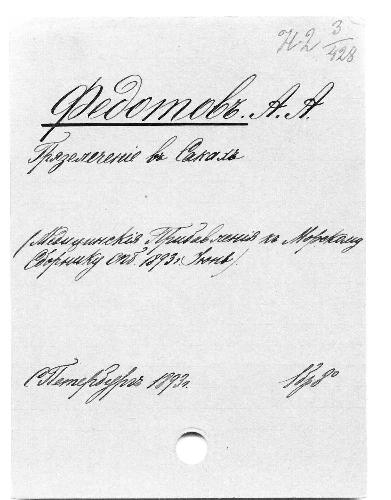 Н-2 3/428
Федотовъ. А. А.
Грязелеченіе въ Сакахъ
(Медицинскія Прибавленія къ Морскому
Сборнику спб. 1893 г. Іюнь).
С Петербургъ 1893 г. 1 бр 8°